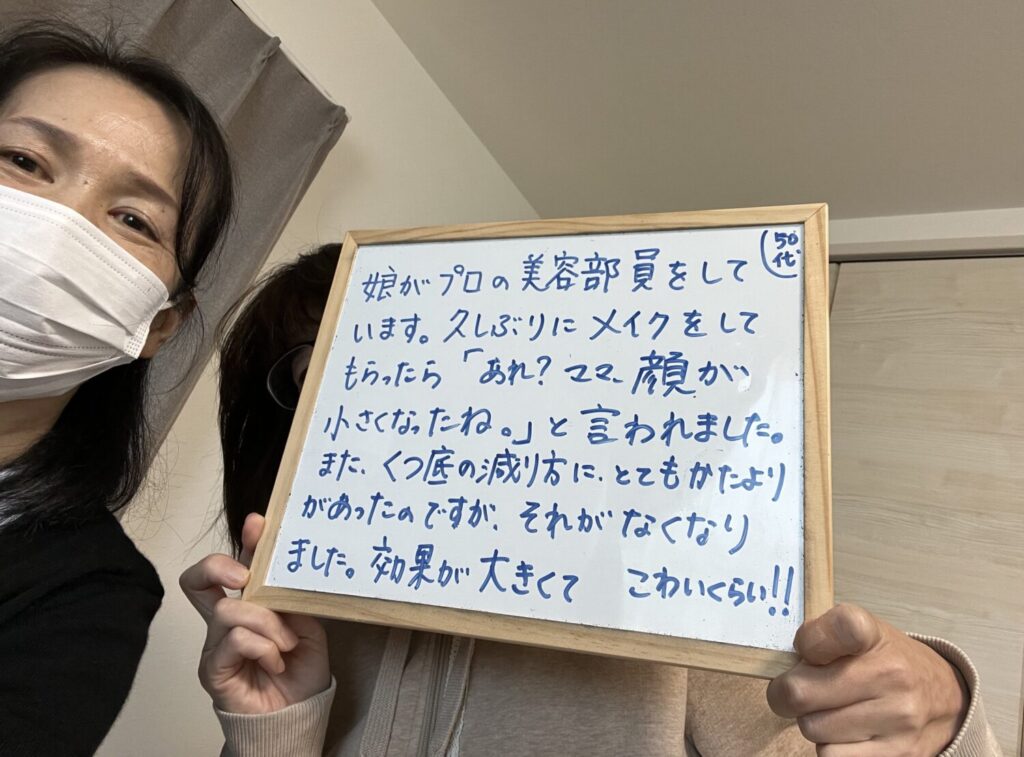 (50代
娘がプロの美容部員をして
います。久しぶりにメイクをして
もらったら「あれ?ママ、顔が
小さくなったね。」と言われました。
また、くつ底の減り方に、とてもかたより
があったのですが、それがなくなり
ました。効果が大きくて こわいくらい!!